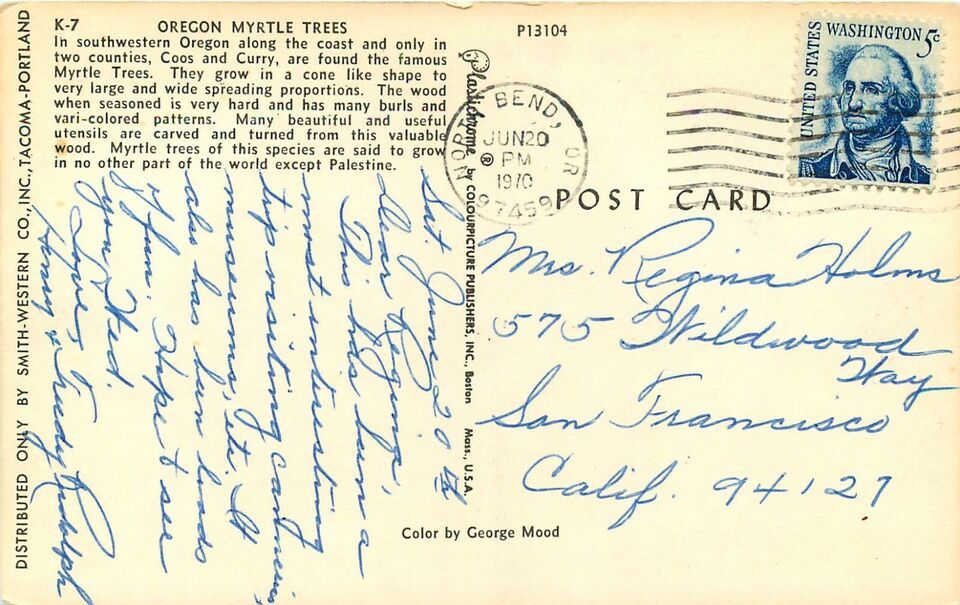 K-7 OREGON MYRTLE TREES
In southwestern Oregon along the coast and only in
two counties, Coos and Curry, are found the famous
Myrtle Trees. They grow in a cone like shape to
very large and wide spreading proportions. The wood
when seasoned is very hard and has many burls and
vari-colored patterns. Many beautiful and useful
utensils are carved and turned from this valuable
wood. Myrtle trees of this species are said to grow
in no other part of the world except Palestine.
P13104
UNITED STATES
WASHINGTON 5c
NORTH BEND, OR
JUN 20
PM
1970
97459
POST CARD
DISTRIBUTED ONLY BY SMITH-WESTERN CO., INC., TACOMA-PORTLAND
Plastichrome by COLOURPICTURE PUBLISHERS, INC., Boston Mass., U.S.A.
Sat. June 20th
Dear Regina,
This has been a
most interesting
trip visiting
museums, etc. It
also has been loads
of fun. Hope to see
you Wed.
Love,
Henry & Trudy Rudolph
Mrs. Regina Holms
575 Wildwood
Way
San Francisco
Calif. 94127
Color by George Mood